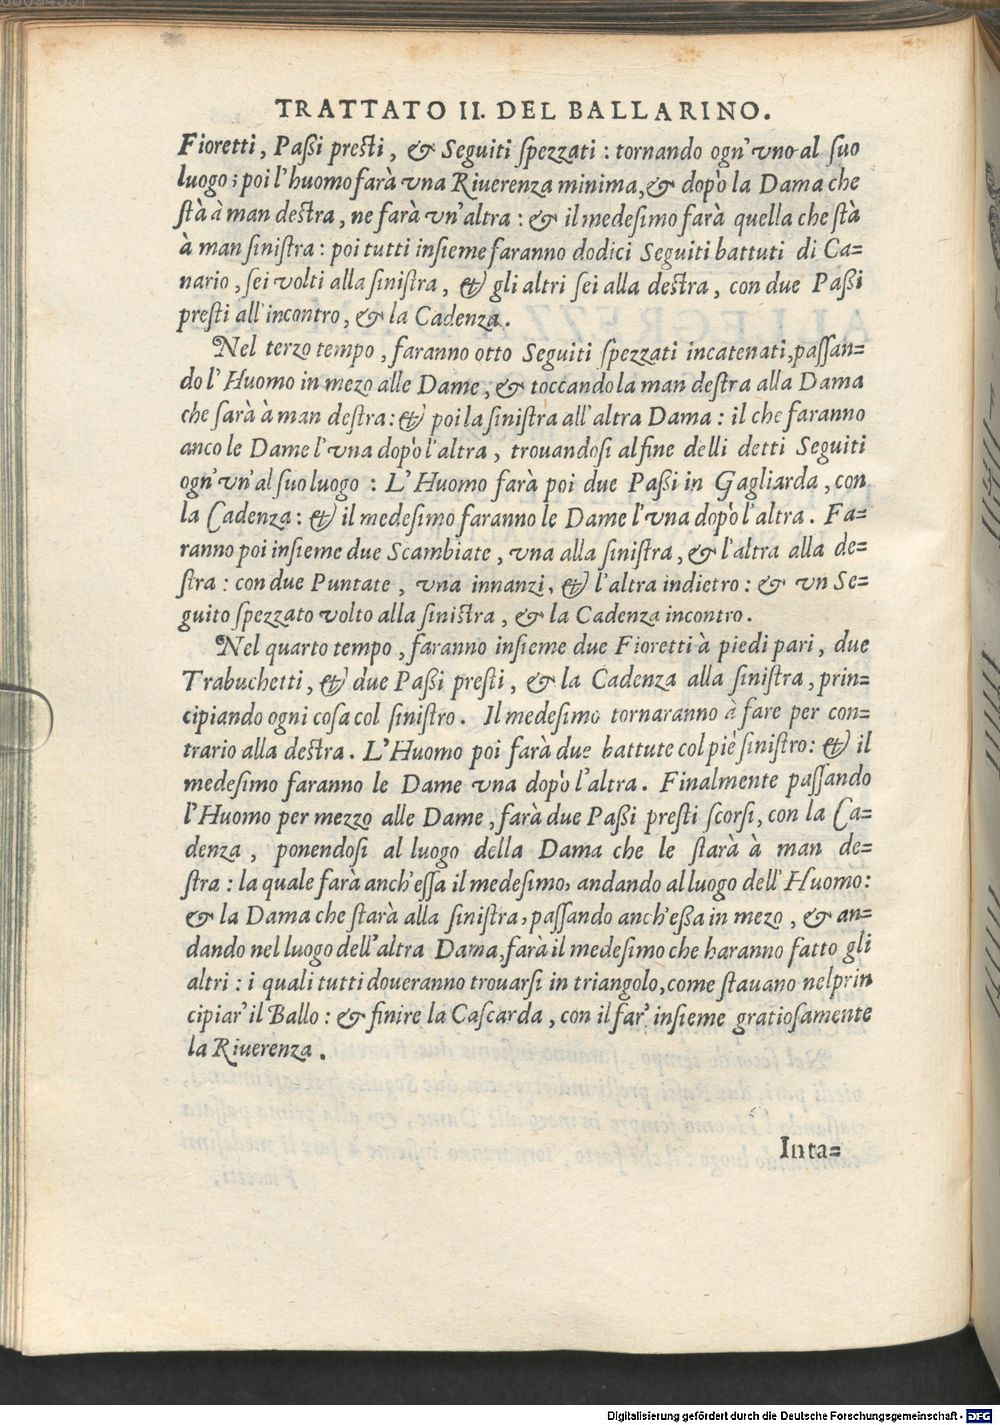 TRATTATO II. DEL BALLARINO.
Fioretti, Paßi presti, & Seguiti spezzati: tornando ogn'vno al suo
luogo; poi l'huomo farà vna Riuerenza minima, & dopò la Dama che
stà à man destra, ne farà vn'altra: & il medesimo farà quella che stà
à man sinistra: poi tutti insieme faranno dodici Seguiti battuti di Ca=
nario, sei volti alla sinistra, & gli altri sei alla destra, con due Paßi
presti all'incontro, & la Cadenza.
Nel terzo tempo, faranno otto Seguiti spezzati incatenati, passan=
do l'Huomo in mezo alle Dame, & toccando la man destra alla Dama
che sarà à man destra: & poi la sinistra all'altra Dama: il che faranno
anco le Dame l'vna dopò l'altra, trouandosi al fine delli detti Seguiti
ogn'vn'al suo luogo: L'Huomo farà poi due Paßi in Gagliarda, con
la Cadenza: & il medesimo faranno le Dame l'vna dopò l'altra. Fa=
ranno poi insieme due Scambiate, vna alla sinistra, & l'altra alla de=
stra: con due Puntate, vna innanzi, & l'altra indietro: & vn Se=
guito spezzato volto alla sinistra, & la Cadenza incontro.
Nel quarto tempo, faranno insieme due Fioretti à piedi pari, due
Trabuchetti, & due Paßi presti, & la Cadenza alla sinistra, prin=
cipiando ogni cosa col sinistro. Il medesimo tornaranno à fare per con=
trario alla destra. L'Huomo poi farà due battute col piè sinistro: & il
medesimo faranno le Dame vna dopò l'altra. Finalmente passando
l'Huomo per mezzo alle Dame, farà due Paßi presti scorsi, con la Ca=
denza, ponendosi al luogo della Dama che le starà à man de=
stra: la quale farà anch'essa il medesimo, andando al luogo dell'Huomo:
& la Dama che starà alla sinistra, passando anch'eßa in mezo, & an=
dando nel luogo dell'altra Dama, farà il medesimo che haranno fatto gli
altri: i quali tutti doueranno trouarsi in triangolo, come stauano nel prin
cipiar' il Ballo: & finire la Cascarda, con il far' insieme gratiosamente
la Riuerenza.
Inta=
Digitalisierung gefördert durch die Deutsche Forschungsgemeinschaft - DFG